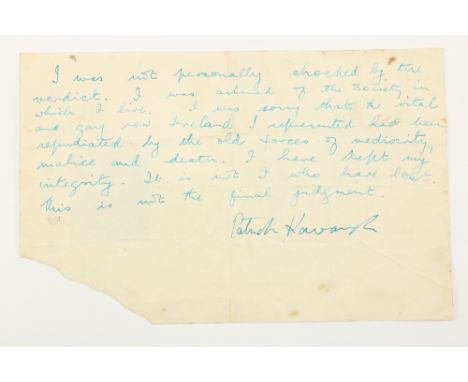 I was not personally shocked by the
verdict. I was ashamed of the Society in
which I live. I was sorry that the vital
and gay new Ireland I represented had been
repudiated by the old forces of mediocrity,
malice and death. I have kept my
integrity. It is not I who have lost.
This is not the final judgment.
Patrick Kavanagh